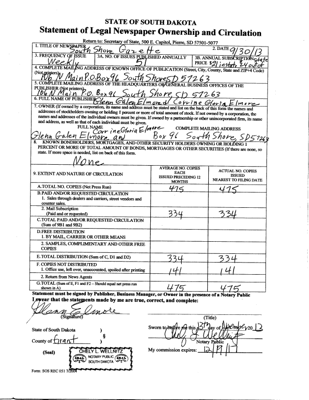 STATE OF SOUTH DAKOTA
Statement of Legal Newspaper Ownership and Circulation
Return to: Secretary of State, 500 E. Capitol, Pierre, SD 57501-5077
1. TITLE OF NEWSPAPER
South Shore Gazette
2. DATE 9/30/13
3. FREQUENCY OF ISSUE
Weekly
3A. NO. OF ISSUES PUBLISHED ANNUALLY
51
3B. ANNUAL SUBSCRIPTION
PRICE
4. COMPLETE MAILING ADDRESS OF KNOWN OFFICE OF PUBLICATION (Street, City, County, State and ZIP+4 Code)
(Not printers)
106 N Main P.O. Box 96 South Shore SD 57263
5. COMPLETE MAILING ADDRESS OF THE HEADQUARTERS OR GENERAL BUSINESS OFFICES OF THE
PUBLISHER (Not printers)
106 N Main P.O. Box 96 South Shore SD 57263
6. FULL NAME OF PUBLISHER
Glenn Galen Elmore and Corrine Gloria Elmore
7. OWNER (If owned by a corporation, its name and address must be stated and
addresses of stockholders owning or holding 1 percent or more of total amount of stock. If not owned by a corporation, the
names and addresses of the individual owners must be given. If owned by a partnership or other unincorporated firm, its name
and address, as well as that of each individual must be given.
FULL NAME
COMPLETE MAILING ADDRESS
Glenn Galen Elmore and Corrine Gloria Elmore
Box 96 South Shore, SD 57263
8. KNOWN BONDHOLDERS, MORTGAGEES, AND OTHER SECURITY HOLDERS OWNING OR HOLDING 1
PERCENT OR MORE OF TOTAL AMOUNT OF BONDS, MORTGAGES OR OTHER SECURITIES (If there are none, so
state. If more space is needed, list on back of this form.
None
9. EXTENT AND NATURE OF CIRCULATION
AVERAGE NO. COPIES
EACH
ISSUED PRECEDING 12
MONTHS
ACTUAL NO. COPIES
ISSUED
NEAREST TO FILING DATE
A. TOTAL NO. COPIES (Net Press Run)
475
475
B. PAID AND/OR REQUESTED CIRCULATION
1. Sales through dealers and carriers, street vendors and
counter sales.
2. Mail Subscription
(Paid and or requested)
334
334
C. TOTAL PAID AND/OR REQUESTED CIRCULATION
(Sum of 9B1 and 9B2)
D. FREE DISTRIBUTION
1. BY MAIL, CARRIER OR OTHER MEANS
2. SAMPLES, COMPLIMENTARY AND OTHER FREE
COPIES
E. TOTAL DISTRIBUTION (Sum of C, D1 and D2)
334
334
F. COPIES NOT DISTRIBUTED
1. Office use, left over, unaccounted, spoiled after printing
141
141
2. Return from News Agents
G. TOTAL (Sum of E, F1 and F2 – Should equal net press run
shown in A)
475
475
Statement must be signed by Publisher, Business Manager, or Owner in the presence of a Notary Public
I swear that the statements made by me are true, correct, and complete:
(Signature)
(Title)
State of South Dakota )
County of Grant )
Sworn to before me this
day of
20 13
(Seal)
NOTARY PUBLIC
SOUTH DAKOTA
Notary Public
My commission expires: